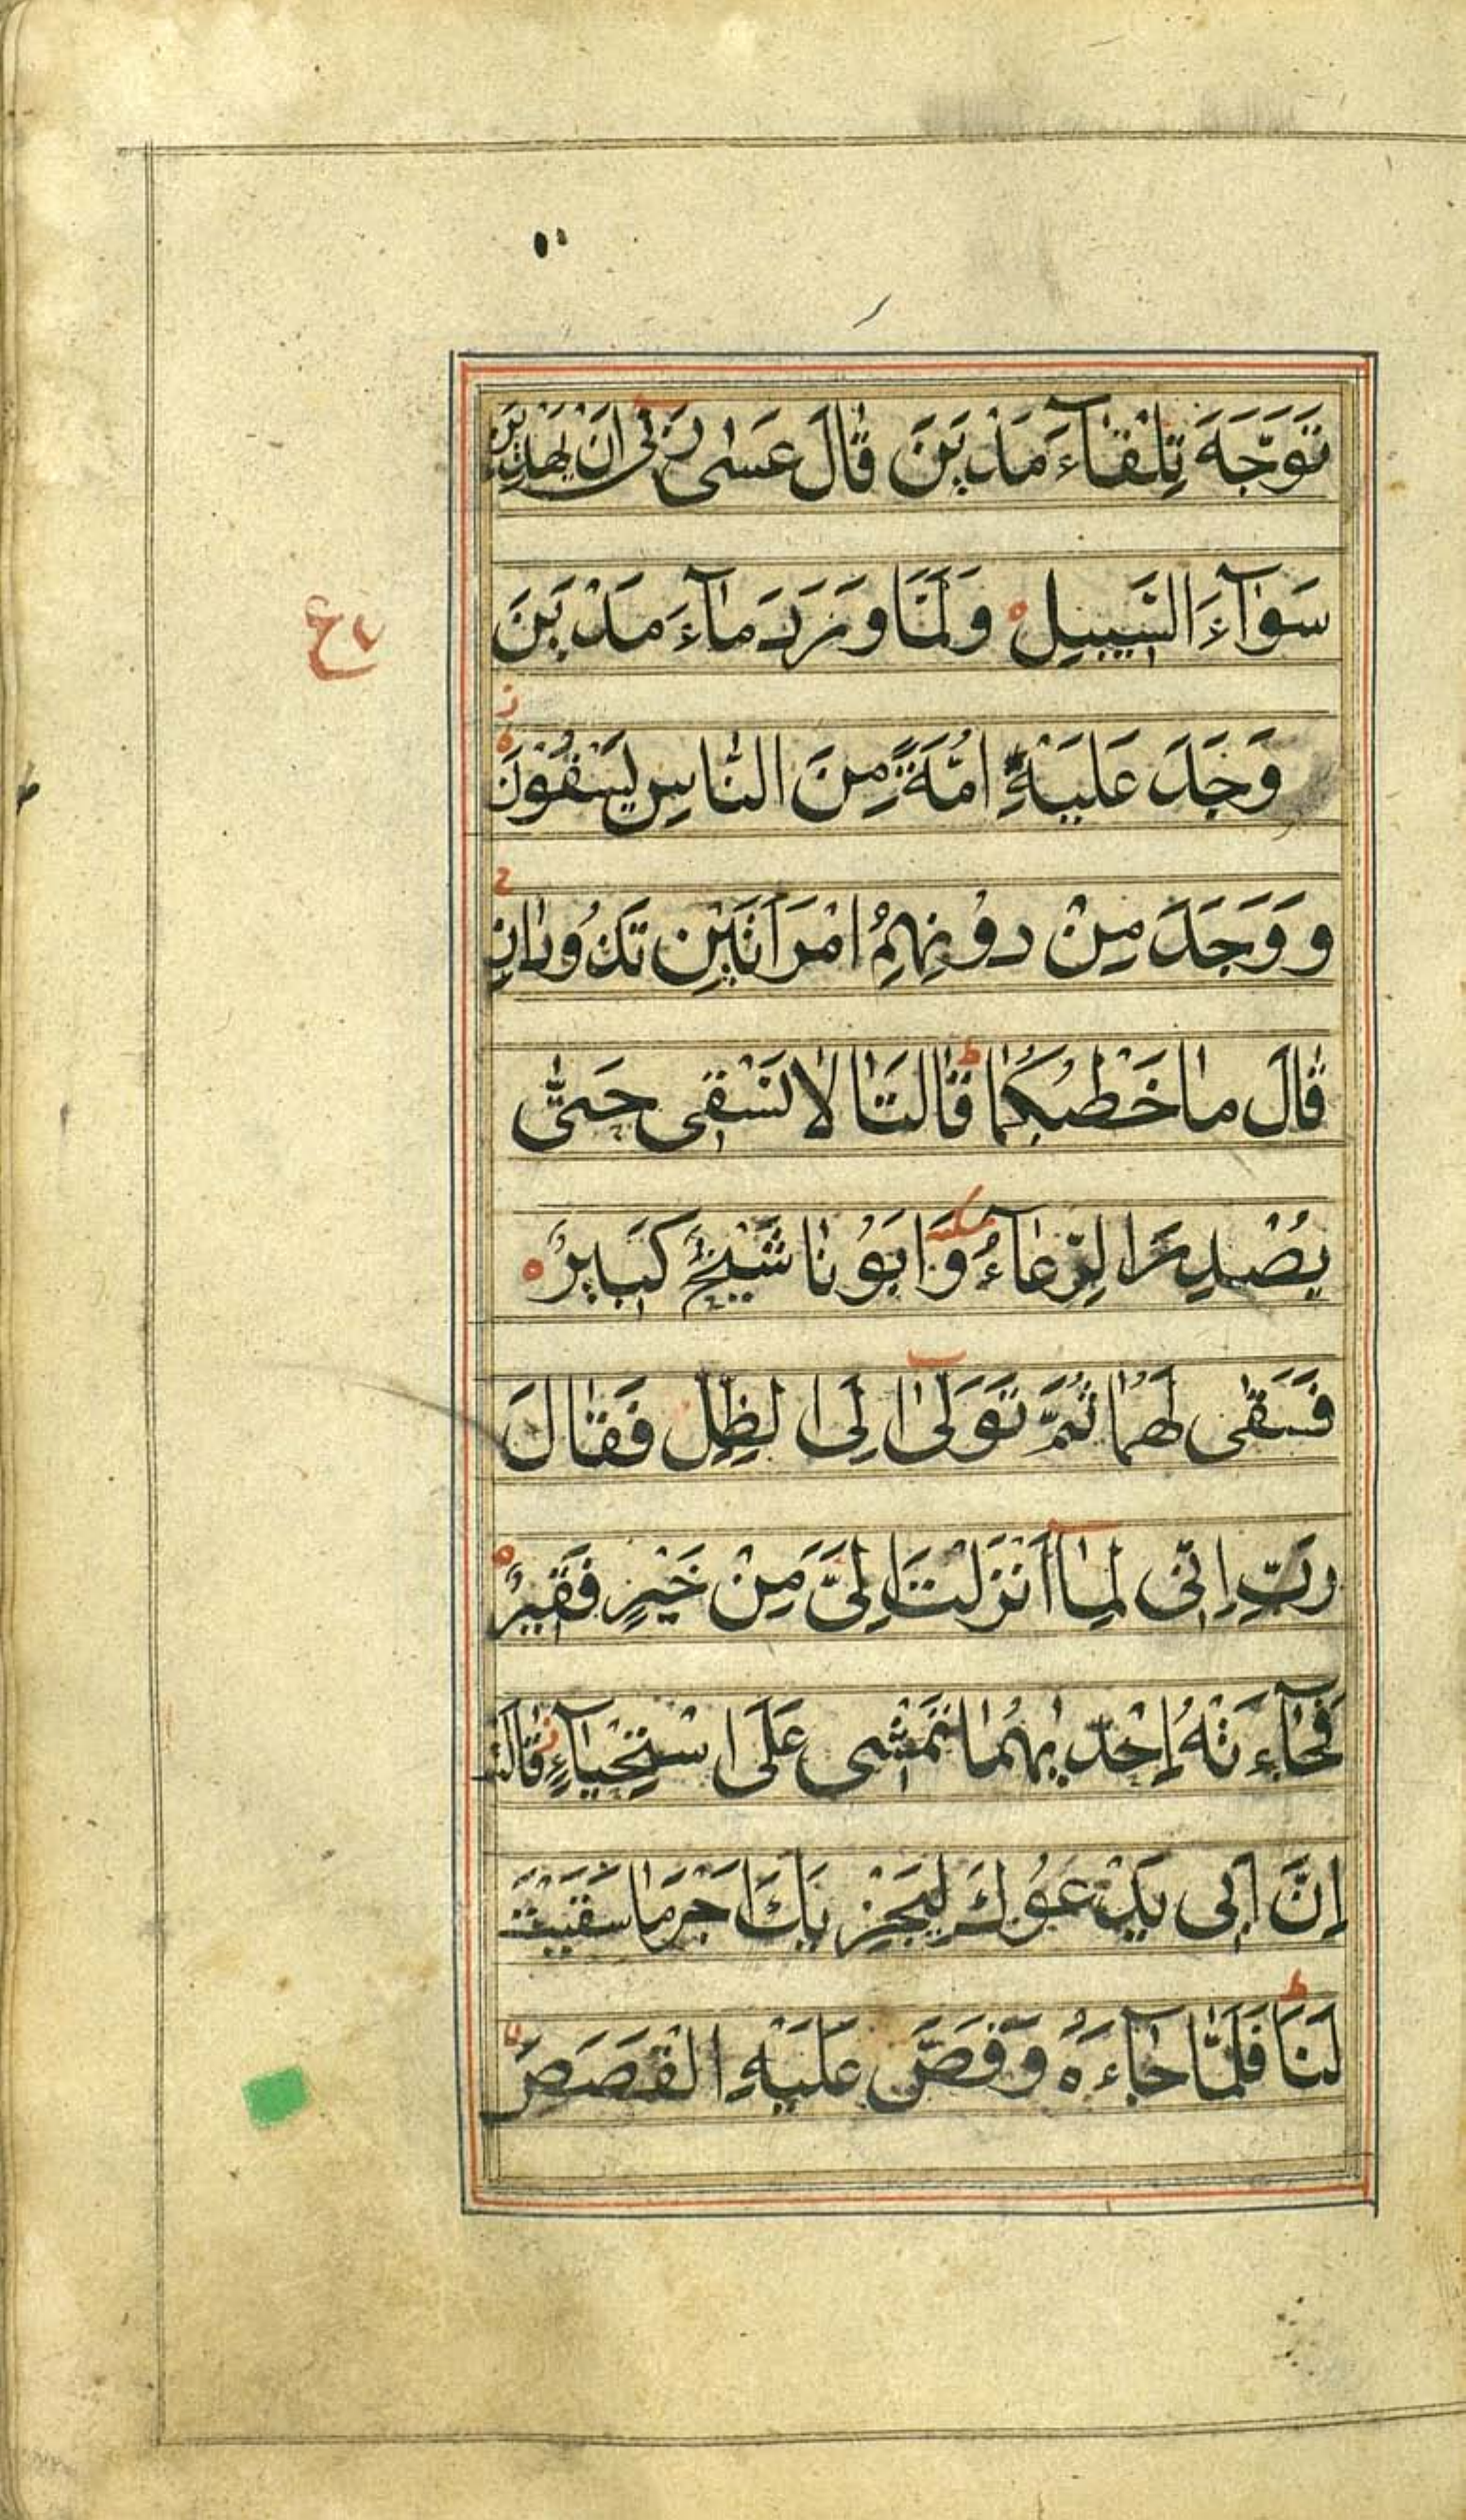 تَوَجَّهَ تِلْقَآءَ مَدْيَنَ قَالَ عَسٰى رَبِّىْ اَنْ يَهْدِيَنِ
سَوَآءَ السَّبِيلِ وَلَمَّا وَرَدَ مَآءَ مَدْيَنَ
وَجَدَ عَلَيْهِ اُمَّةً مِنَ النَّاسِ يَسْقُوْنَ
وَوَجَدَ مِنْ دُوْنِهِمُ امْرَاَتَيْنِ تَذُوْدَانِ
قَالَ مَا خَطْبُكُمَا قَالَتَا لَا نَسْقِى حَتّٰى
يُصْدِرَ الرِّعَآءُ وَاَبُوْنَا شَيْخٌ كَبِيْرٌ
فَسَقٰى لَهُمَا ثُمَّ تَوَلّٰىٓ اِلَى الظِّلِّ فَقَالَ
رَبِّ اِنِّى لِمَآ اَنْزَلْتَ اِلَىَّ مِنْ خَيْرٍ فَقِيْرٌ
فَجَآءَتْهُ اِحْدٰيهُمَا تَمْشِى عَلَى اسْتِحْيَآءٍ قَالَتْ
اِنَّ اَبِى يَدْعُوْكَ لِيَجْزِيَكَ اَجْرَ مَا سَقَيْتَ
لَنَا فَلَمَّا جَآءَهُ وَقَصَّ عَلَيْهِ الْقَصَصَ